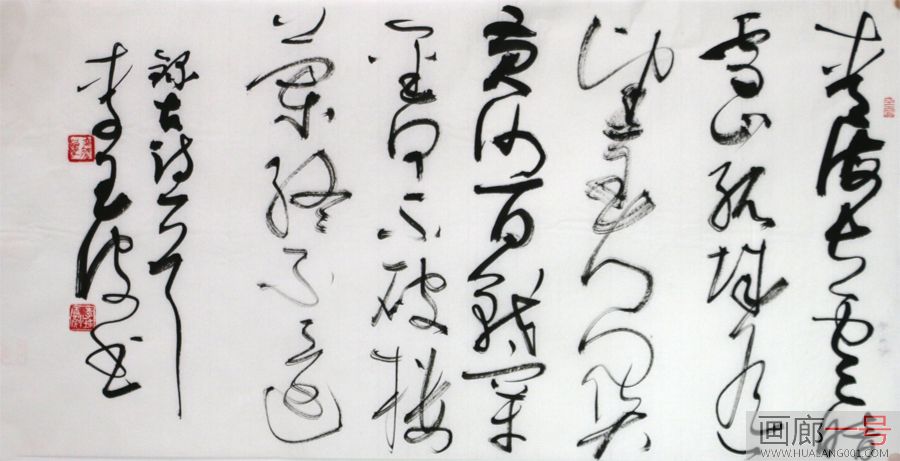 青海长云暗
雪山孤城遥
望玉门关
黄沙百战穿
金甲不破楼
兰终不还
录古诗一首
李玉波书
画廊一号
WWW.HUALANG001.COM